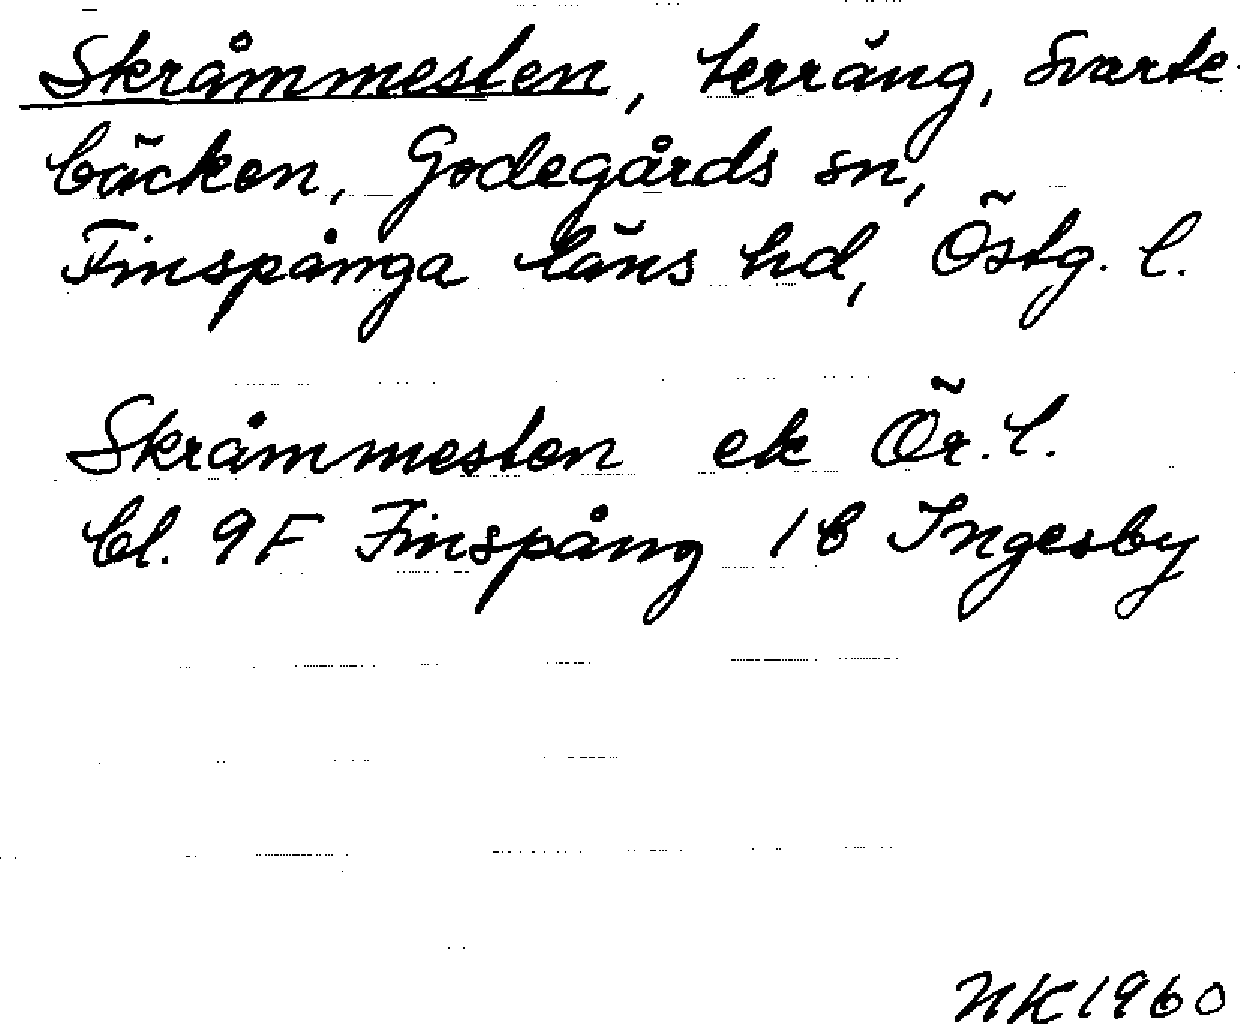 Skråmmesten, terräng, Svarte-
bäcken, Godegårds sn,
Finspånga läns hd, Östg. l.
Skråmmesten ek Ör. l.
bl. 9F Finspång 1 b Ingesby
NK 1960